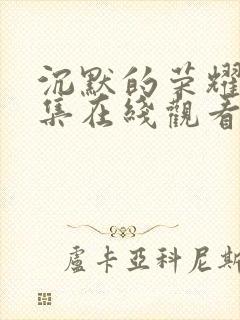 沉默的荣耀
集在綫觀看
盧卡亞科尼斯